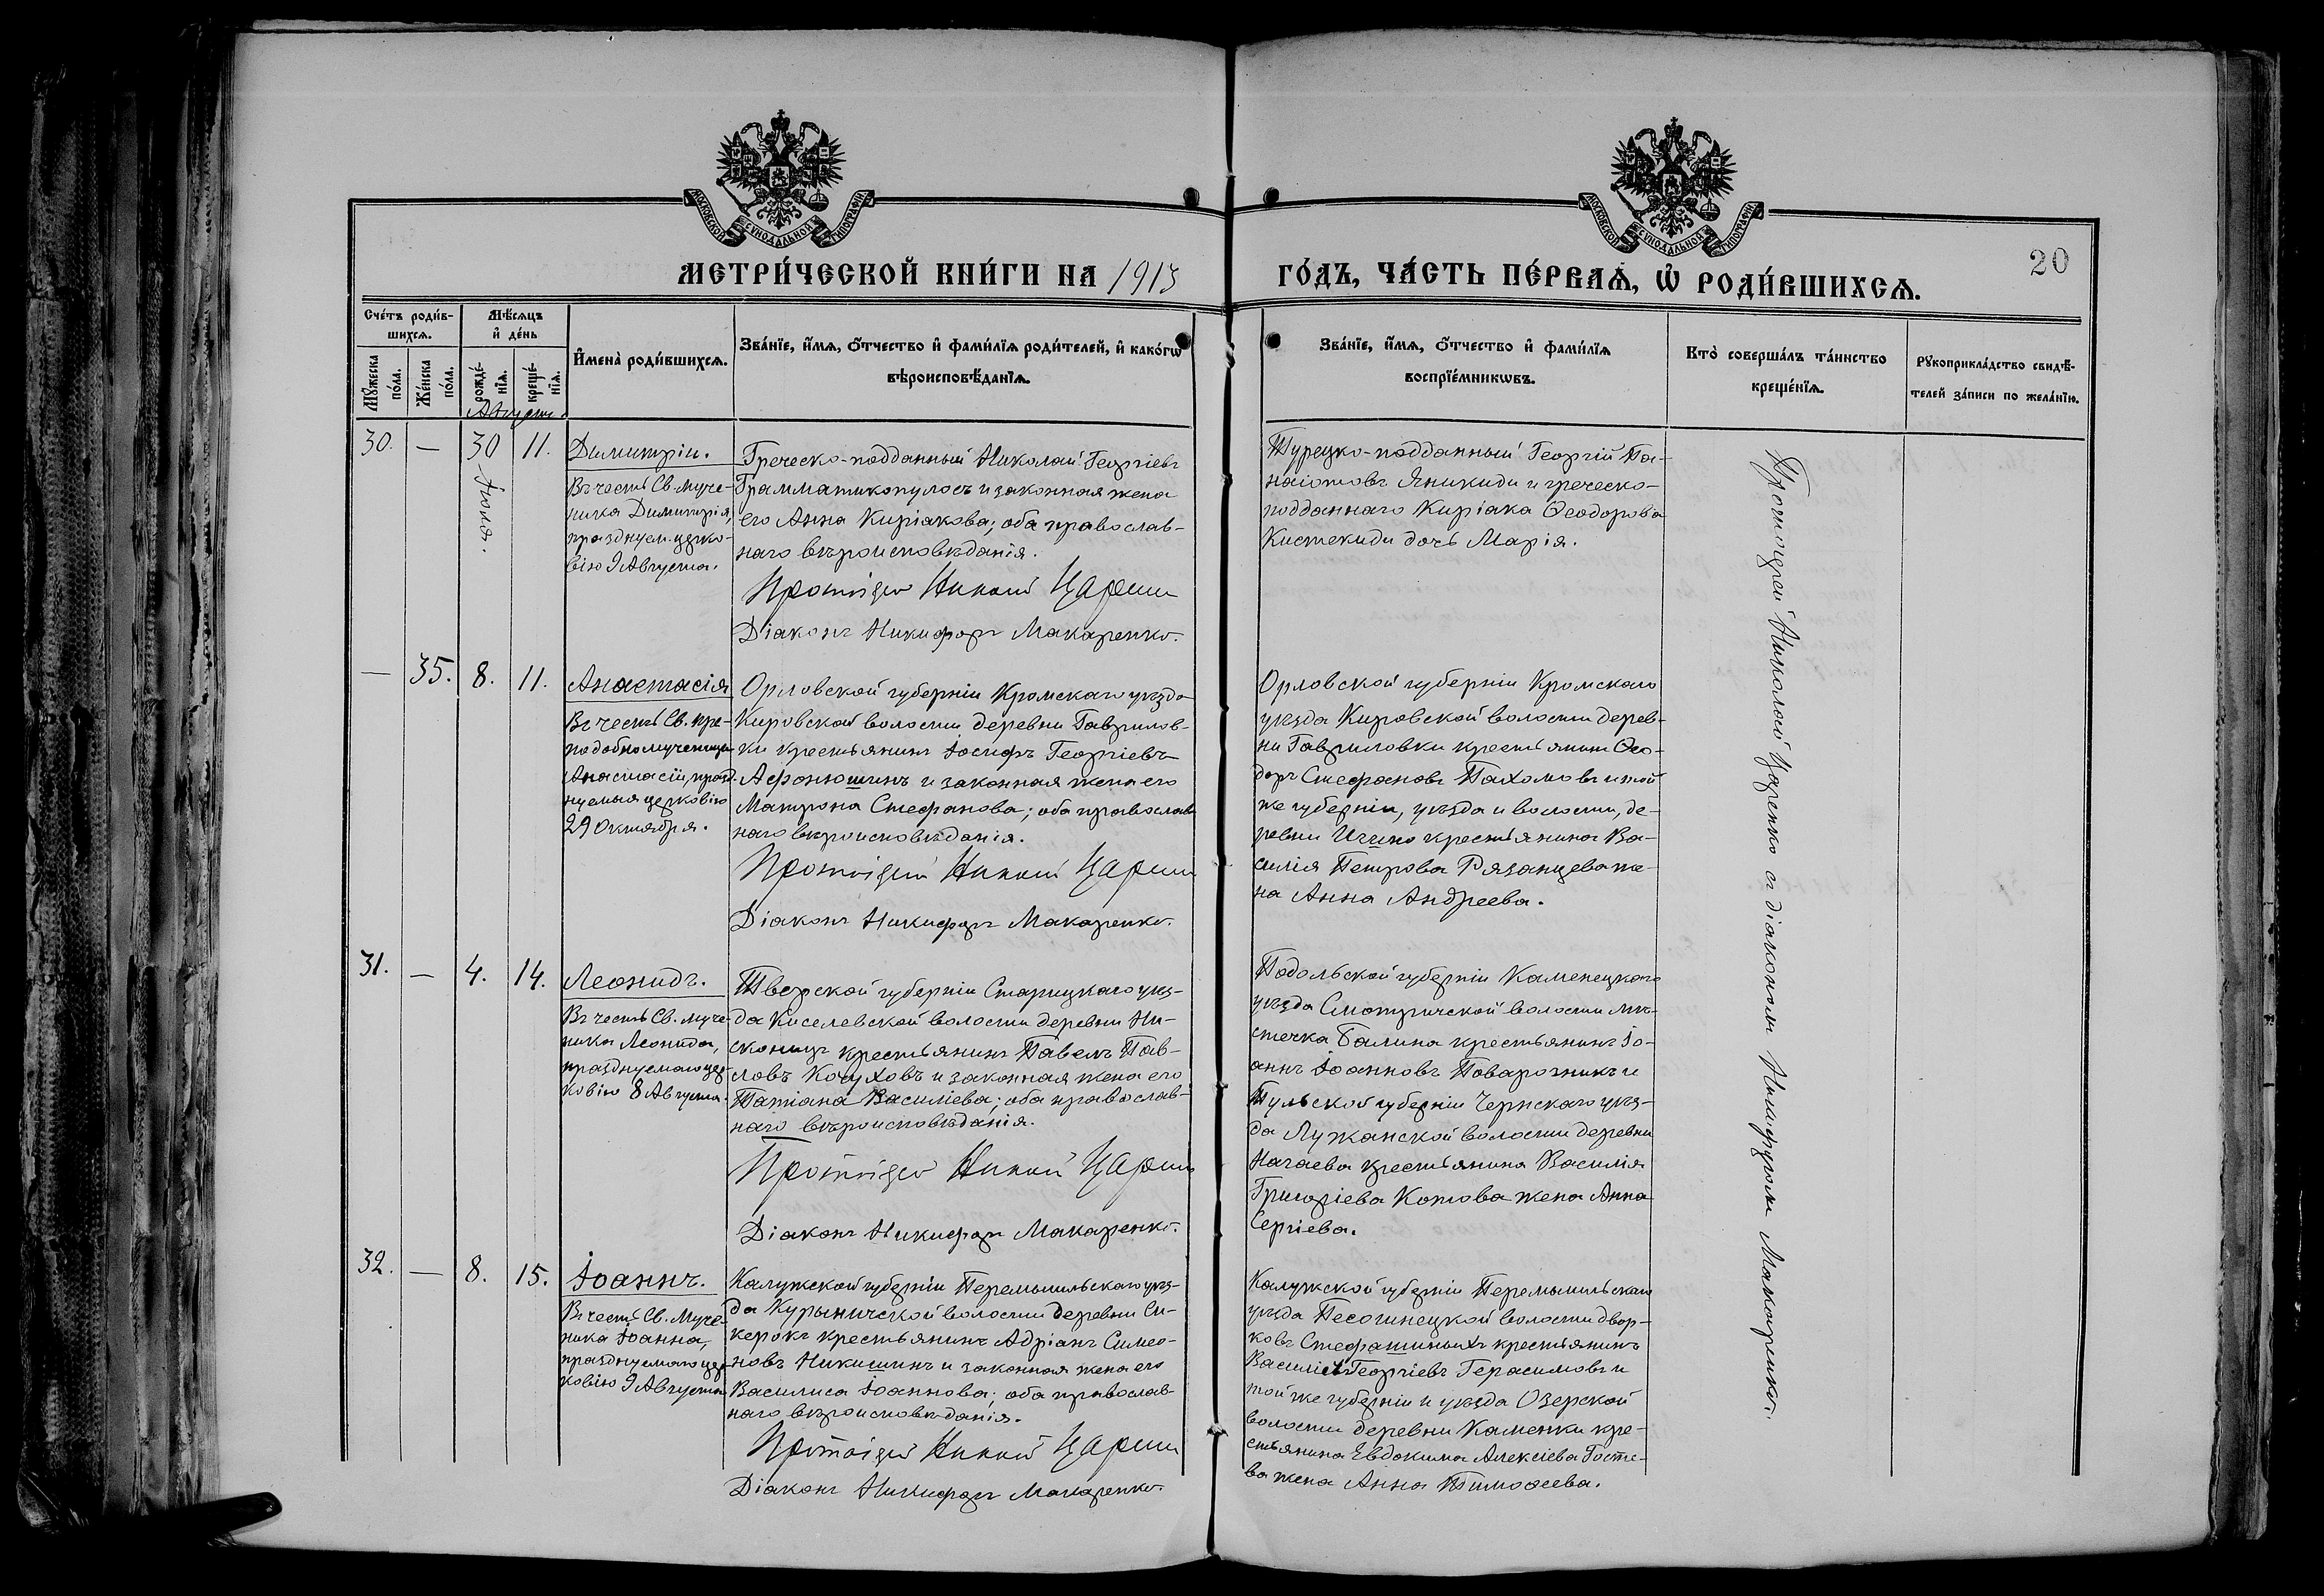 МОСКОВСКОЙ СУНОДАЛЬНОЙ ТИПОГРАФІИ
МОСКОВСКОЙ СУНОДАЛЬНОЙ ТИПОГРАФІИ
МЕТРИ́ЧЕСКОЙ КНИ́ГИ НА 1913
ГО́ДЪ, ЧА́СТЬ ПЕ́РВАѦ, Ѡ҆ РОДИ́ВШИХСѦ.
20
Сче́тъ роди́в-
шихсѧ.
Мѣ́сѧцъ
и҆ де́нь
Мꙋ́жеска
по́ла.
Же́нска
по́ла.
рожде́-
нїѧ.
креще́-
нїѧ.
И҆мена̀ роди́вшихсѧ.
Зва́нїе, и҆́мѧ, ѻ҆́тчество и҆ фами́лїѧ роди́телей, и҆ како́гѡ
вѣроисповѣ́данїѧ.
Зва́нїе, и҆́мѧ, ѻ҆́тчество и҆ фами́лїѧ
воспрїе́мникѡвъ.
Кто̀ соверша́лъ та́инство
креще́нїѧ.
Рꙋкоприкла́дство свидѣ́-
телей за́писи по жела́нїю.
Августа
30. — 30 11.
Іюля.
Димитрій.
Въ честь Св. муче-
ника Димитрія,
празднуем. церко-
вію 9 Августа.
Греческо-подданный Николай Георгіевъ
Грамматикопулосъ и законная жена
его Анна Киріакова; оба православ-
наго вѣроисповѣданія.
Протоіерей Николай Царенко
Діаконъ Никифоръ Макаренко.
Турецко-подданный Георгій Па-
наіотовъ Яникиди и греческо-
подданнаго Киріака Ѳеодорова
Кистекиди дочь Марія.
Протоіерей Николай Царенко съ діакономъ Никифоромъ Макаренко.
— 35. 8. 11.
Анастасія
Въ честь Св. пре-
подобномученицы
Анастасіи, празд-
нуемыя церковію
29 Октября.
Орловской губерніи Кромскаго уѣзда
Кировской волости деревни Гаврилов-
ки крестьянинъ Іосифъ Георгіевъ
Афонюшинъ и законная жена его
Матрона Стефанова; оба православ-
наго вѣроисповѣданія.
Протоіерей Николай Царенко
Діаконъ Никифоръ Макаренко.
Орловской губерніи Кромскаго
уѣзда Кировской волости дерев-
ни Гавриловки крестьянинъ Ѳео-
доръ Стефановъ Пахомовъ и той
же губерніи, уѣзда и волости, де-
ревни крестьянина Ва-
силія Петрова Рязанцева же-
на Анна Андреева.
31. — 4. 14.
Леонидъ.
Въ честь Св. муче-
ника Леонида,
празднуемаго цер-
ковію 8 Августа.
Тверской губерніи Старицкаго уѣз-
да Киселевской волости деревни Ни-
сконицъ крестьянинъ Павелъ Пав-
ловъ и законная жена его
Татіана Василіева; оба православ-
наго вѣроисповѣданія.
Протоіерей Николай Царенко
Діаконъ Никифоръ Макаренко.
Подольской губерніи Каменецкаго
уѣзда Смотричской волости мѣ-
стечка Балина крестьянинъ Іо-
аннъ Іоанновъ Поварозникъ и
Тульской губерніи Чернскаго уѣз-
да Лужанской волости деревни
Начаева крестьянина Василія
Григоріева Котова жена Анна
Сергіева.
32. — 8. 15.
Іоаннъ.
Въ честь Св. Муче-
ника Іоанна,
празднуемаго цер-
ковію 9 Августа
Калужской губерніи Перемышльскаго уѣз-
да Курыничской волости деревни Си-
керокъ крестьянинъ Адріанъ Симео-
новъ Никишинъ и законная жена его
Василиса Іоаннова; оба православ-
наго вѣроисповѣданія.
Протоіерей Николай Царенко
Діаконъ Никифоръ Макаренко.
Калужской губерніи Перемышльскаго
уѣзда Песочинецкой волости двор-
ковъ Стефашиныхъ крестьянинъ
Василій Георгіевъ Герасимовъ и
той же губерніи и уѣзда Озерской
волости деревни Каменки кре-
стьянина Евдокима Алексіева Госте-
ва жена Анна Тимоѳеева.